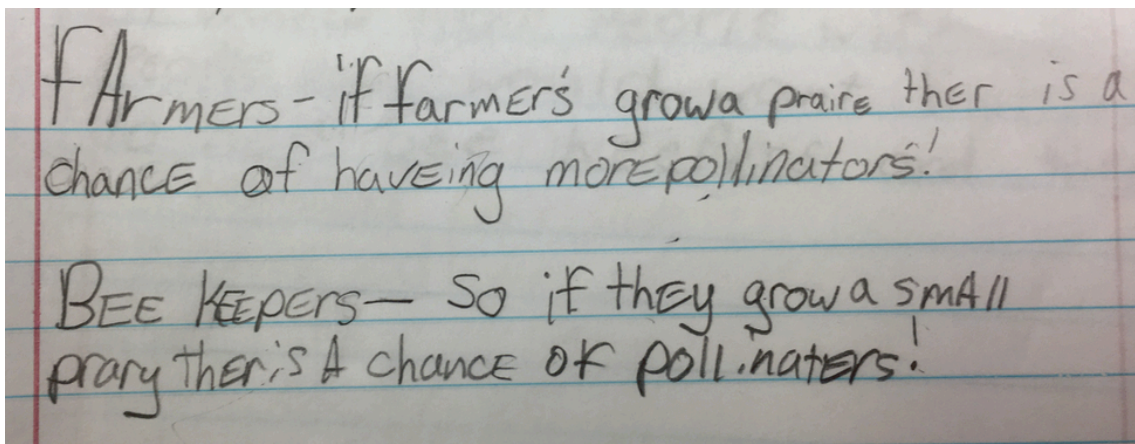 fArmers - if farmer's growa praire ther is a
chance of haveing more pollinators!
BEE KEEpERs - So if thEy grow a smAll
prary ther is A chance of pollinaters!